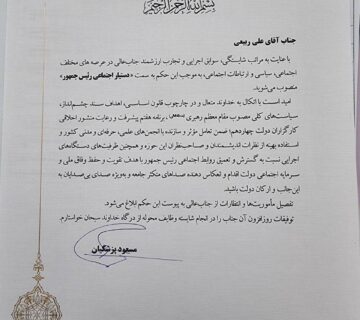 بسم الله الرحمن الرحیم
جناب آقای علی ربیعی
با عنایت به مراتب شایستگی، سوابق اجرایی و تجارب ارزشمند جناب‌عالی در عرصه های مختلف
اجتماعی، سیاسی و ارتباطات اجتماعی، به موجب این حکم به سمت «دستیار اجتماعی رئیس جمهور»
منصوب می‌شوید.
امید است با اتکال به خداوند متعال و در چارچوب قانون اساسی، اهداف سند چشم‌انداز،
سیاست‌های کلی مصوب مقام معظم رهبری، برنامه هفتم پیشرفت و رعایت منشور اخلاقی
کارگزاران دولت چهاردهم؛ ضمن تعامل مؤثر و سازنده با انجمن‌های علمی، حرفه‌ای و مدنی کشور و
استفاده بهینه از نظرات اندیشمندان و صاحب‌نظران این حوزه و همچنین ظرفیت‌های دستگاه‌های
اجرایی نسبت به گسترش و تعمیق روابط اجتماعی رئیس جمهور با هدف تقویت و حفظ وفاق ملی و
سرمایه اجتماعی دولت اقدام و انعکاس دهنده صداهای متکثر جامعه و به‌ویژه صدای بی‌صدایان به
این‌جانب و ارکان دولت باشید.
تفصیل مأموریت‌ها و انتظارات از جناب‌عالی به پیوست این حکم ابلاغ می‌شود.
توفیقات روزافزون آن جناب را در انجام شایسته وظایف محوله از درگاه خداوند سبحان خواستارم.
مسعود پزشکیان